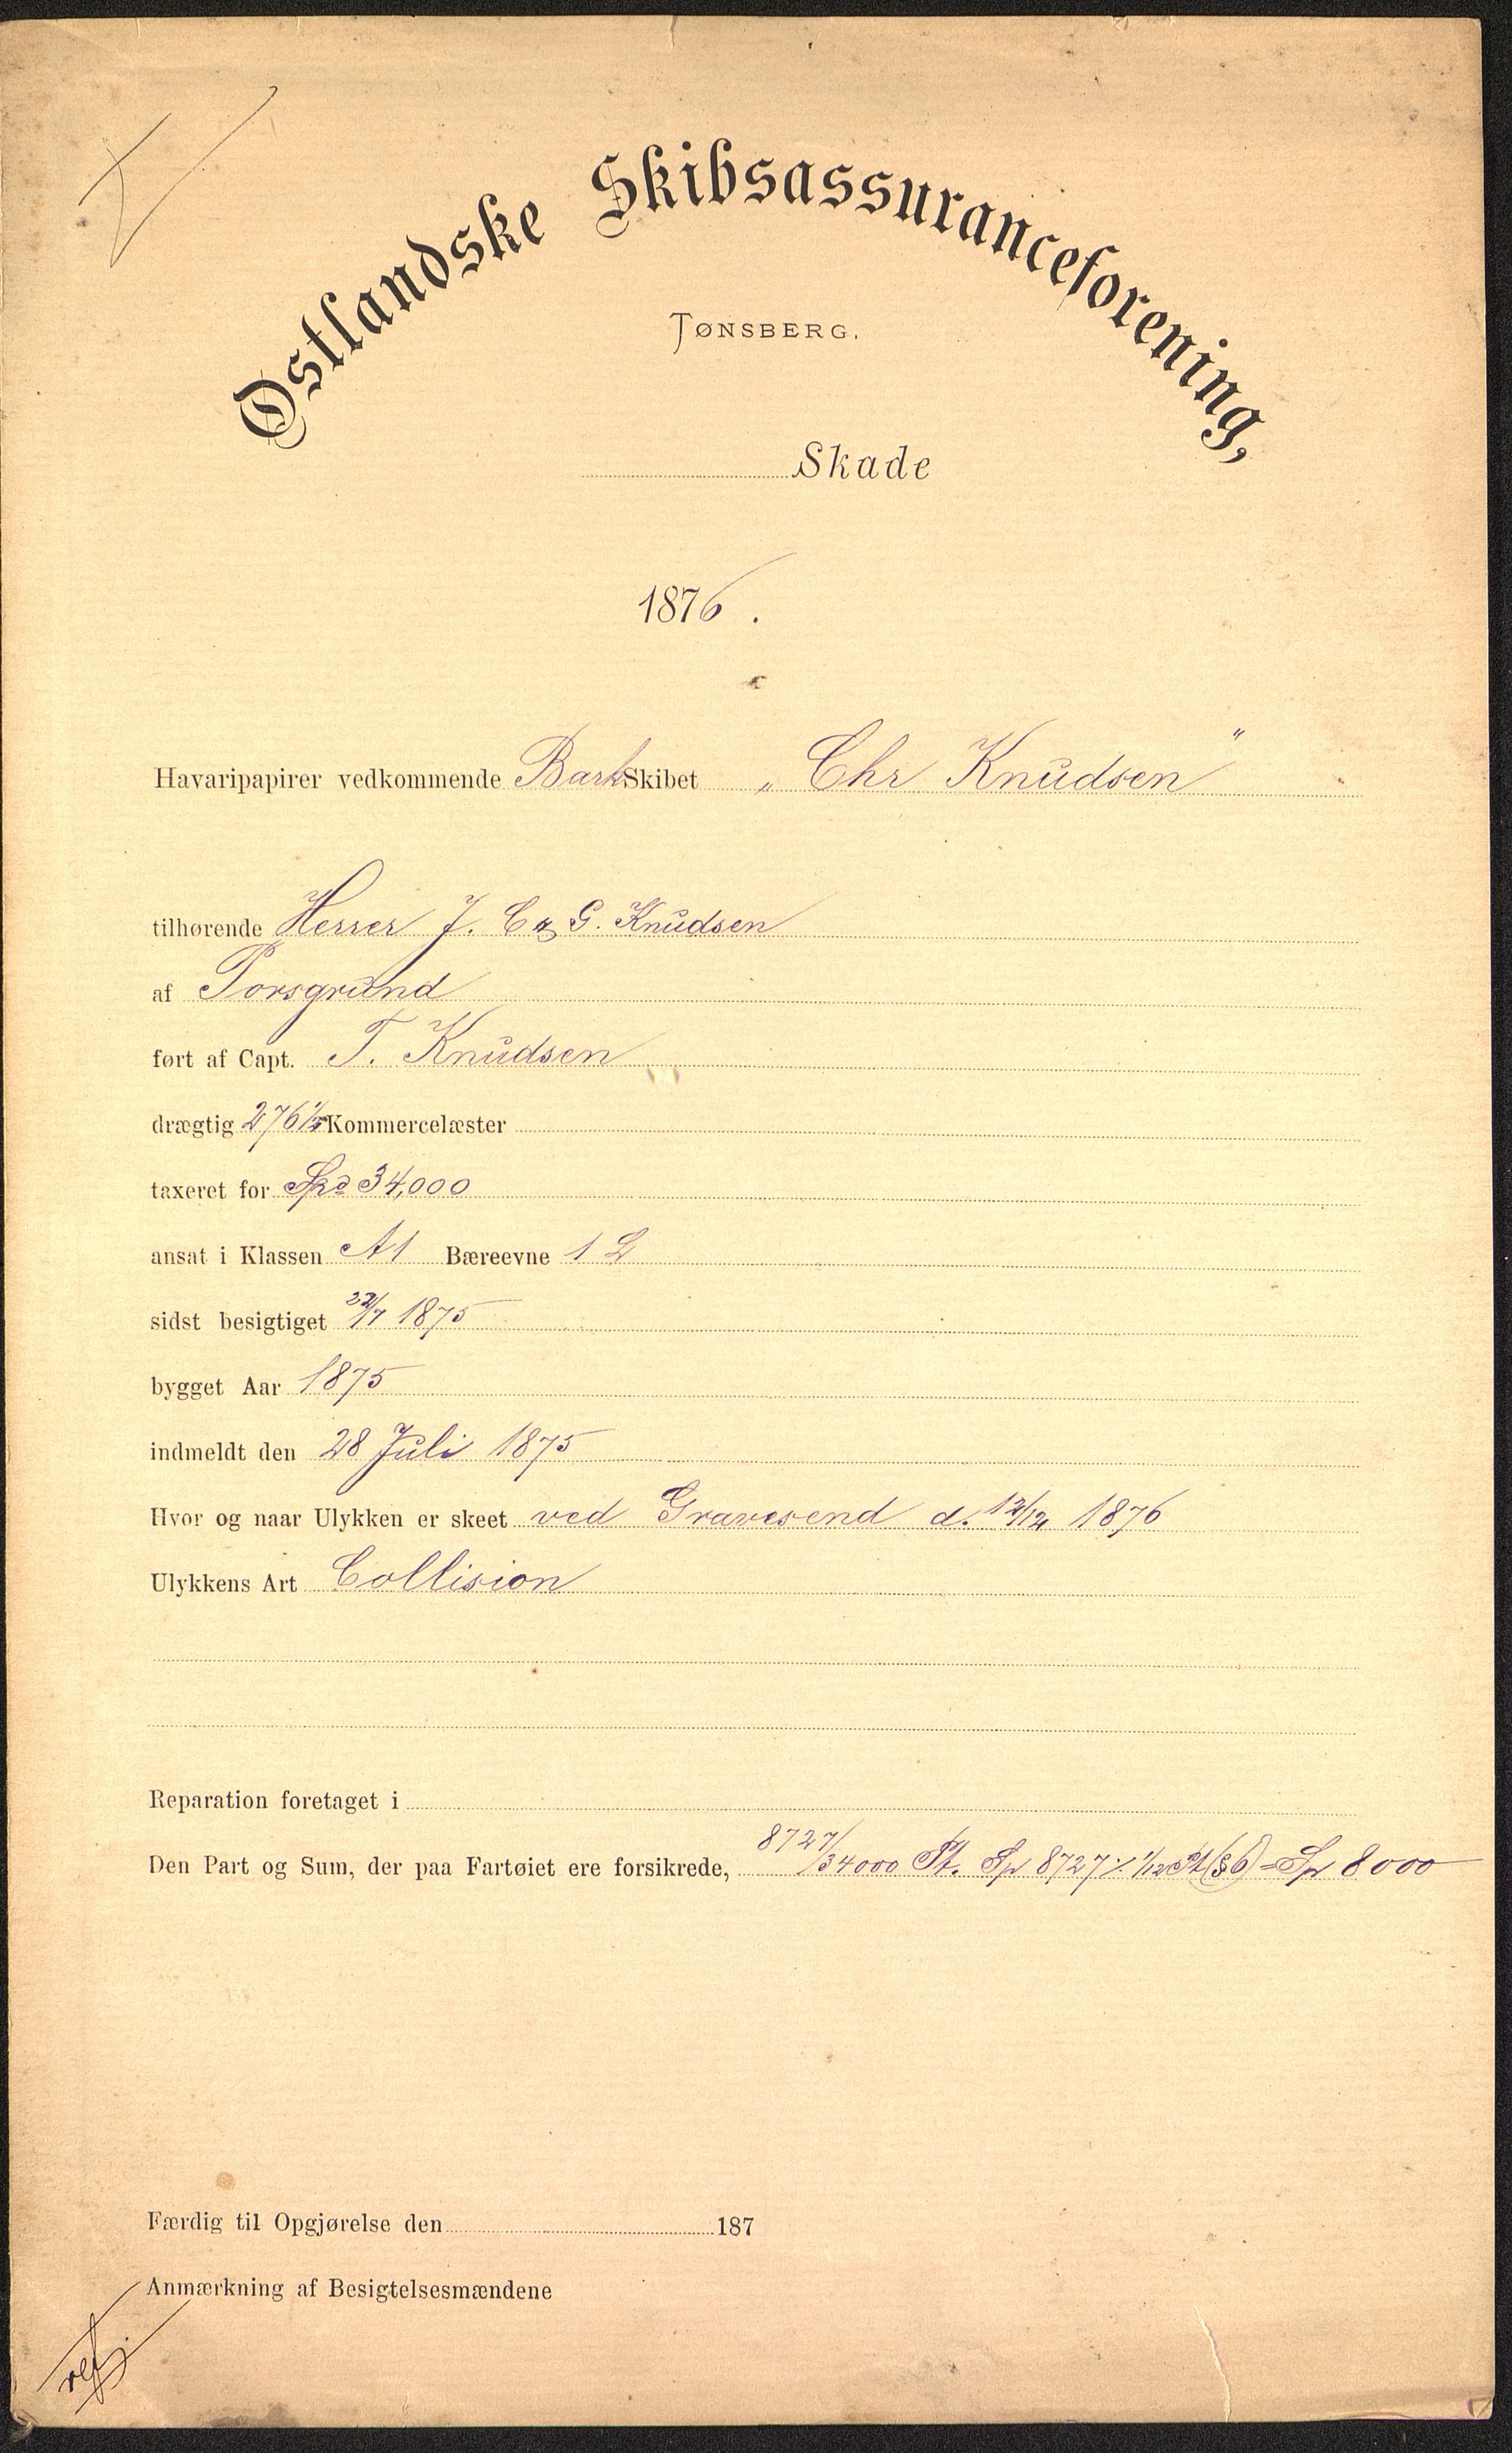 Østlandske Skibsassuranceforening,
TØNSBERG.
Skade
1876.
Havaripapirer vedkommende Bark Skibet „Chr Knudsen"
tilhørende Herrer J. C & G. Knudsen
af Porsgrund
ført af Capt. T. Knudsen
drægtig 276 1/2 Kommercelæster
taxeret for Spd 34,000
ansat i Klassen A1 Bæreevne 1 L
sidst besigtiget 22/7 1875
bygget Aar 1875
indmeldt den 28 Juli 1875
Hvor og naar Ulykken er skeet ved Gravesend d. 12/12 1876
Ulykkens Art Collision
Reparation foretaget i
Den Part og Sum, der paa Fartøiet ere forsikrede, 8727/34000 Pt. Sp 8727 ./. 1/12 Pt (§6) = Sp 8000
Færdig til Opgjørelse den 187
Anmærkning af Besigtelsesmændene